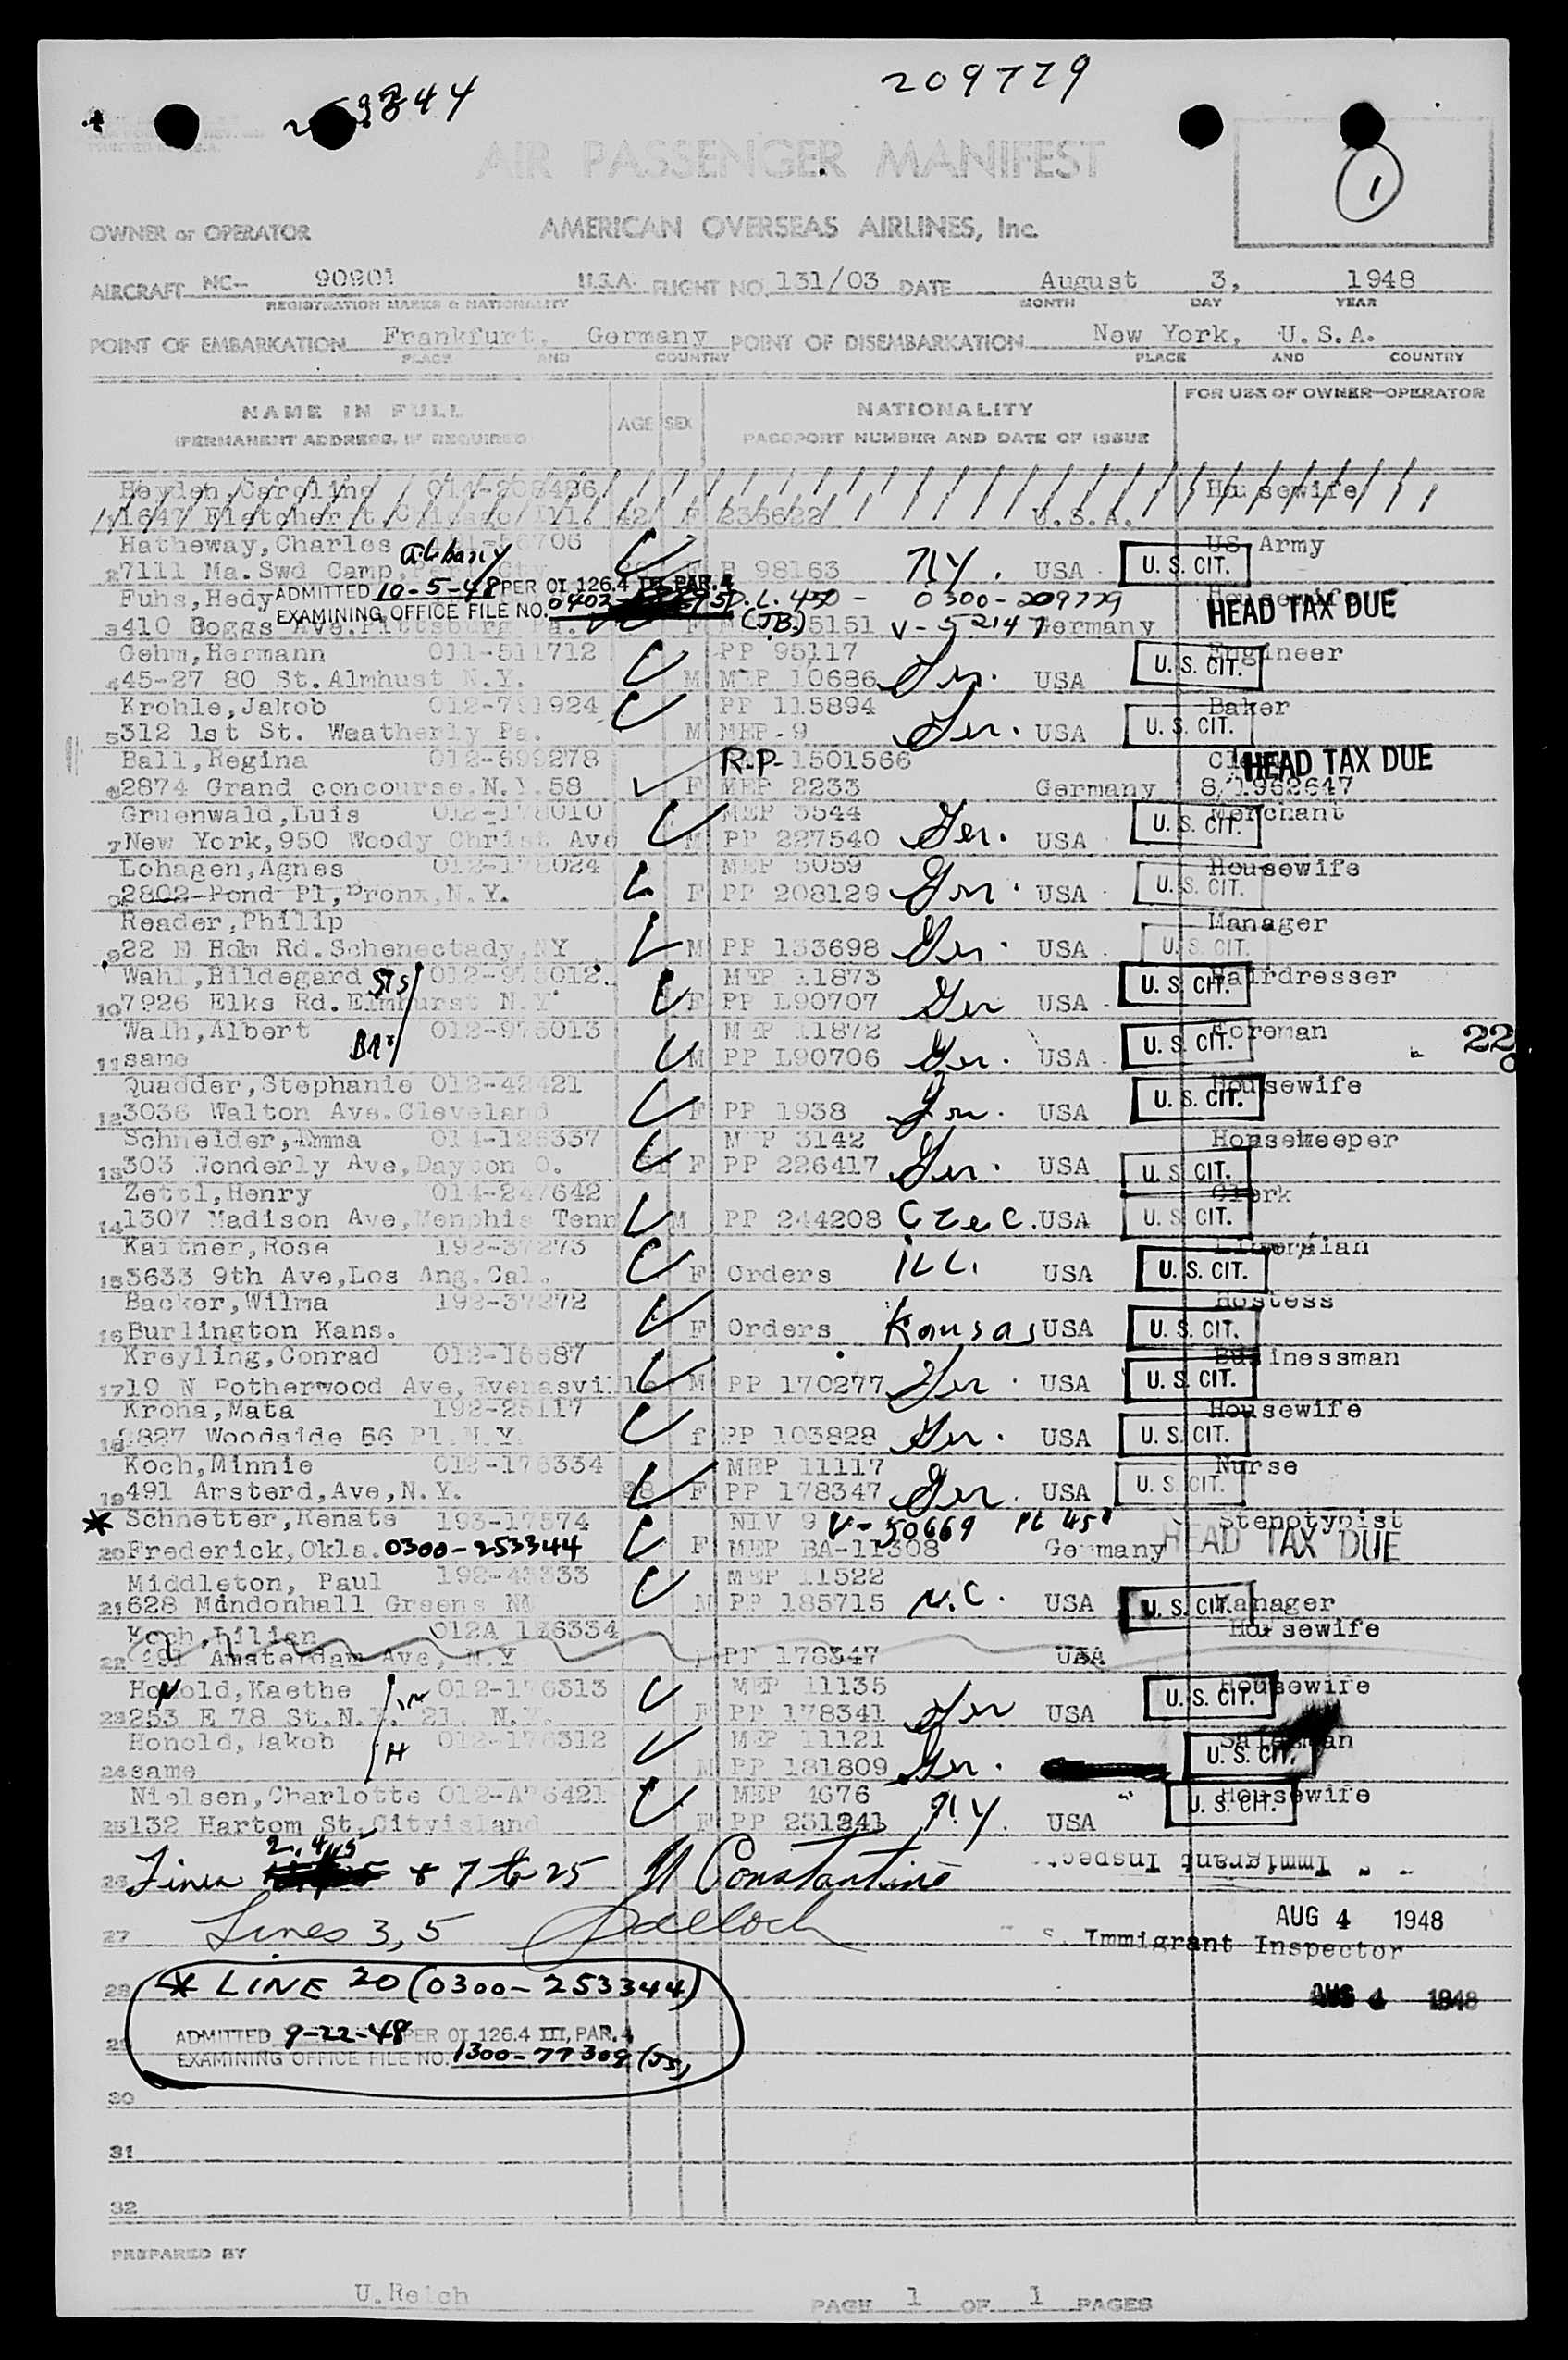 209779
AIR PASSENGER MANIFEST
1
OWNER or OPERATOR AMERICAN OVERSEAS AIRLINES, Inc.
AIRCRAFT NC- 90901 U.S.A. FLIGHT NO. 131/03 DATE August 3, 1948
REGISTRATION MARKS & NATIONALITY MONTH DAY YEAR
POINT OF EMBARKATION Frankfurt, Germany POINT OF DISEMBARKATION New York, U.S.A.
PLACE AND COUNTRY PLACE AND COUNTRY
NAME IN FULL AGE SEX NATIONALITY FOR USE OF OWNER-OPERATOR
(PERMANENT ADDRESS, IF REQUIRED) PASSPORT NUMBER AND DATE OF ISSUE
Heyden, Caroline 014-208486 Housewife
1 1647 Fletcher Chicago Ill. 42 F 236622 U.S.A.
Hatheway, Charles Albany US Army
2 7111 Ma. Swd Camp, B 98163 N.Y. USA U.S. CIT.
Fuhs, Hedy ADMITTED 10-5-48 PER OI 126.4 III PAR. 4 0300-209779
EXAMINING OFFICE FILE NO. (JB.) HEAD TAX DUE
3 410 Boggs Ave. Pittsburg F V-52147 Germany
Gehm, Hermann 011-511712 PP 95117 Engineer
4 45-27 80 St. Almhust N.Y. M MEP 10686 Ger. USA U.S. CIT.
Krohle, Jakob 012-781924 PP 115894 Baker
5 312 1st St. Weatherly Pa. M MEP-9 Ger. USA U.S. CIT.
Ball, Regina 012-899278 R.P. 1501566 HEAD TAX DUE
6 2874 Grand concourse. N.Y. 58 F MEP 2233 Germany 8/1952647
Gruenwald, Luis 012-178010 MEP 3544 Merchant
7 New York, 950 Woody Christ Ave M PP 227540 Ger. USA U.S. CIT.
Lohagen, Agnes 012-178024 MEP 5059 Housewife
8 2802 Pond Pl, Bronx, N.Y. F PP 208129 Ger. USA U.S. CIT.
Reader, Philip Manager
9 22 N Holm Rd. Schenectady, NY M PP 133698 Ger. USA U.S. CIT.
Wahl, Hildegard 012-975012 MEP 11873 Hairdresser
10 7926 Elks Rd. Elmhurst N.Y. F PP L90707 Ger USA U.S. CIT.
Walh, Albert 012-975013 MEP 11872 Foreman
11 same M PP L90706 Ger. USA U.S. CIT. 22
Quadder, Stephanie 012-42421 Housewife
12 3036 Walton Ave. Cleveland F PP 1938 Ger. USA U.S. CIT.
Schneider, Emma 014-126337 MEP 3142 Housekeeper
13 303 Wonderly Ave, Dayton O. F PP 226417 Ger. USA U.S. CIT.
Zettl, Henry 014-247642 Clerk
14 1307 Madison Ave, Memphis Tenn M PP 244208 Czec. USA U.S. CIT.
Kaitner, Rose 192-37273
15 3633 9th Ave, Los Ang. Cal. F Orders ILL. USA U.S. CIT.
Backer, Wilma 192-37272 Hostess
16 Burlington Kans. F Orders Kansas USA U.S. CIT.
Kreyling, Conrad 012-16687 Businessman
17 19 N Rotherwood Ave, Evenasville M PP 170277 Ger. USA U.S. CIT.
Krona, Mata 192-25117 Housewife
18 3827 Woodside 56 Pl. N.Y. f PP 103828 Ger. USA U.S. CIT.
Koch, Minnie 012-176334 MEP 11117 Nurse
19 491 Amsterd, Ave, N.Y. 28 F PP 178347 Ger. USA U.S. CIT.
* Schnetter, Renate 193-17574 NIV 9 V-50669 Stenotypist
20 Frederick, Okla. 0300-253344 F MEP BA-11308 Germany HEAD TAX DUE
Middleton, Paul 192-43333 MEP 11522
21 628 Mindonhall Greens NC M PP 185715 N.C. USA U.S. CIT. Manager
Koch, Lilian 012A 176334 Housewife
22 491 Amsterdam Ave, N.Y PP 178347 USA
Honold, Kaethe 012-176313 MEP 11135 Housewife
23 253 E 78 St. N.Y. 21, N.Y. F PP 178341 Ger USA U.S. CIT.
Honold, Jakob H 012-176312 MEP 11121 Salesman
24 same M PP 181809 Ger. U.S. CIT.
Nielsen, Charlotte 012-A76421 MEP 4676 Housewife
25 132 Hartom St. Cityisland F PP 231241 N.Y. USA U.S. CIT.
2, 4, 5
26 Lines & 7 to 25 N Constantino Immigrant Inspector
27 Lines 3, 5 AUG 4 1948
S. Immigrant Inspector
28 * LINE 20 (0300-253344) AUG 4 1948
29 ADMITTED 9-22-48 PER OI 126.4 III, PAR. 4
EXAMINING OFFICE FILE NO. 1300-77309
30
31
32
PREPARED BY
U. Reich PAGE 1 OF 1 PAGES